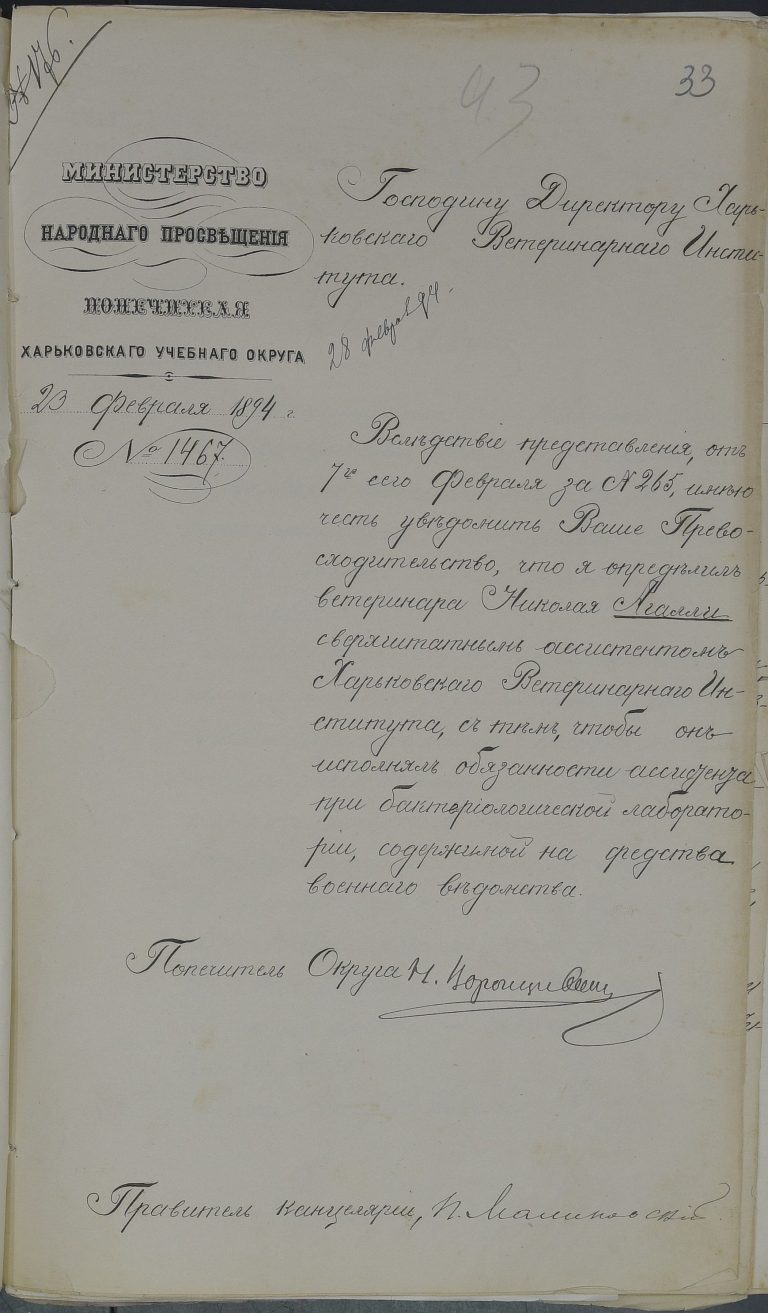 № 176.
43
33
МИНИСТЕРСТВО
НАРОДНАГО ПРОСВѢЩЕНІЯ
ХАРЬКОВСКАГО УЧЕБНАГО ОКРУГА
23 Февраля 1894 г.
№ 1467.
Господину Директору Харь-
ковскаго Ветеринарнаго Инсти-
тута.
28 феврал 94.
Вслѣдствіе представленія, отъ
7го сего Февраля за N 265, имѣю
честь увѣдомить Ваше Прево-
сходительство, что я опредѣлилъ
ветеринара Николая Агалли
сверхштатнымъ ассистентомъ
Харьковскаго Ветеринарнаго Ин-
ститута, съ тѣмъ, чтобы онъ
исполнялъ обязанности ассистента
при бактеріологической лаборато-
ріи, содержимой на средства
военнаго вѣдомства.
Попечитель Округа Н. Воронцовъ
Правитель канцеляріи, П. Малиновскій